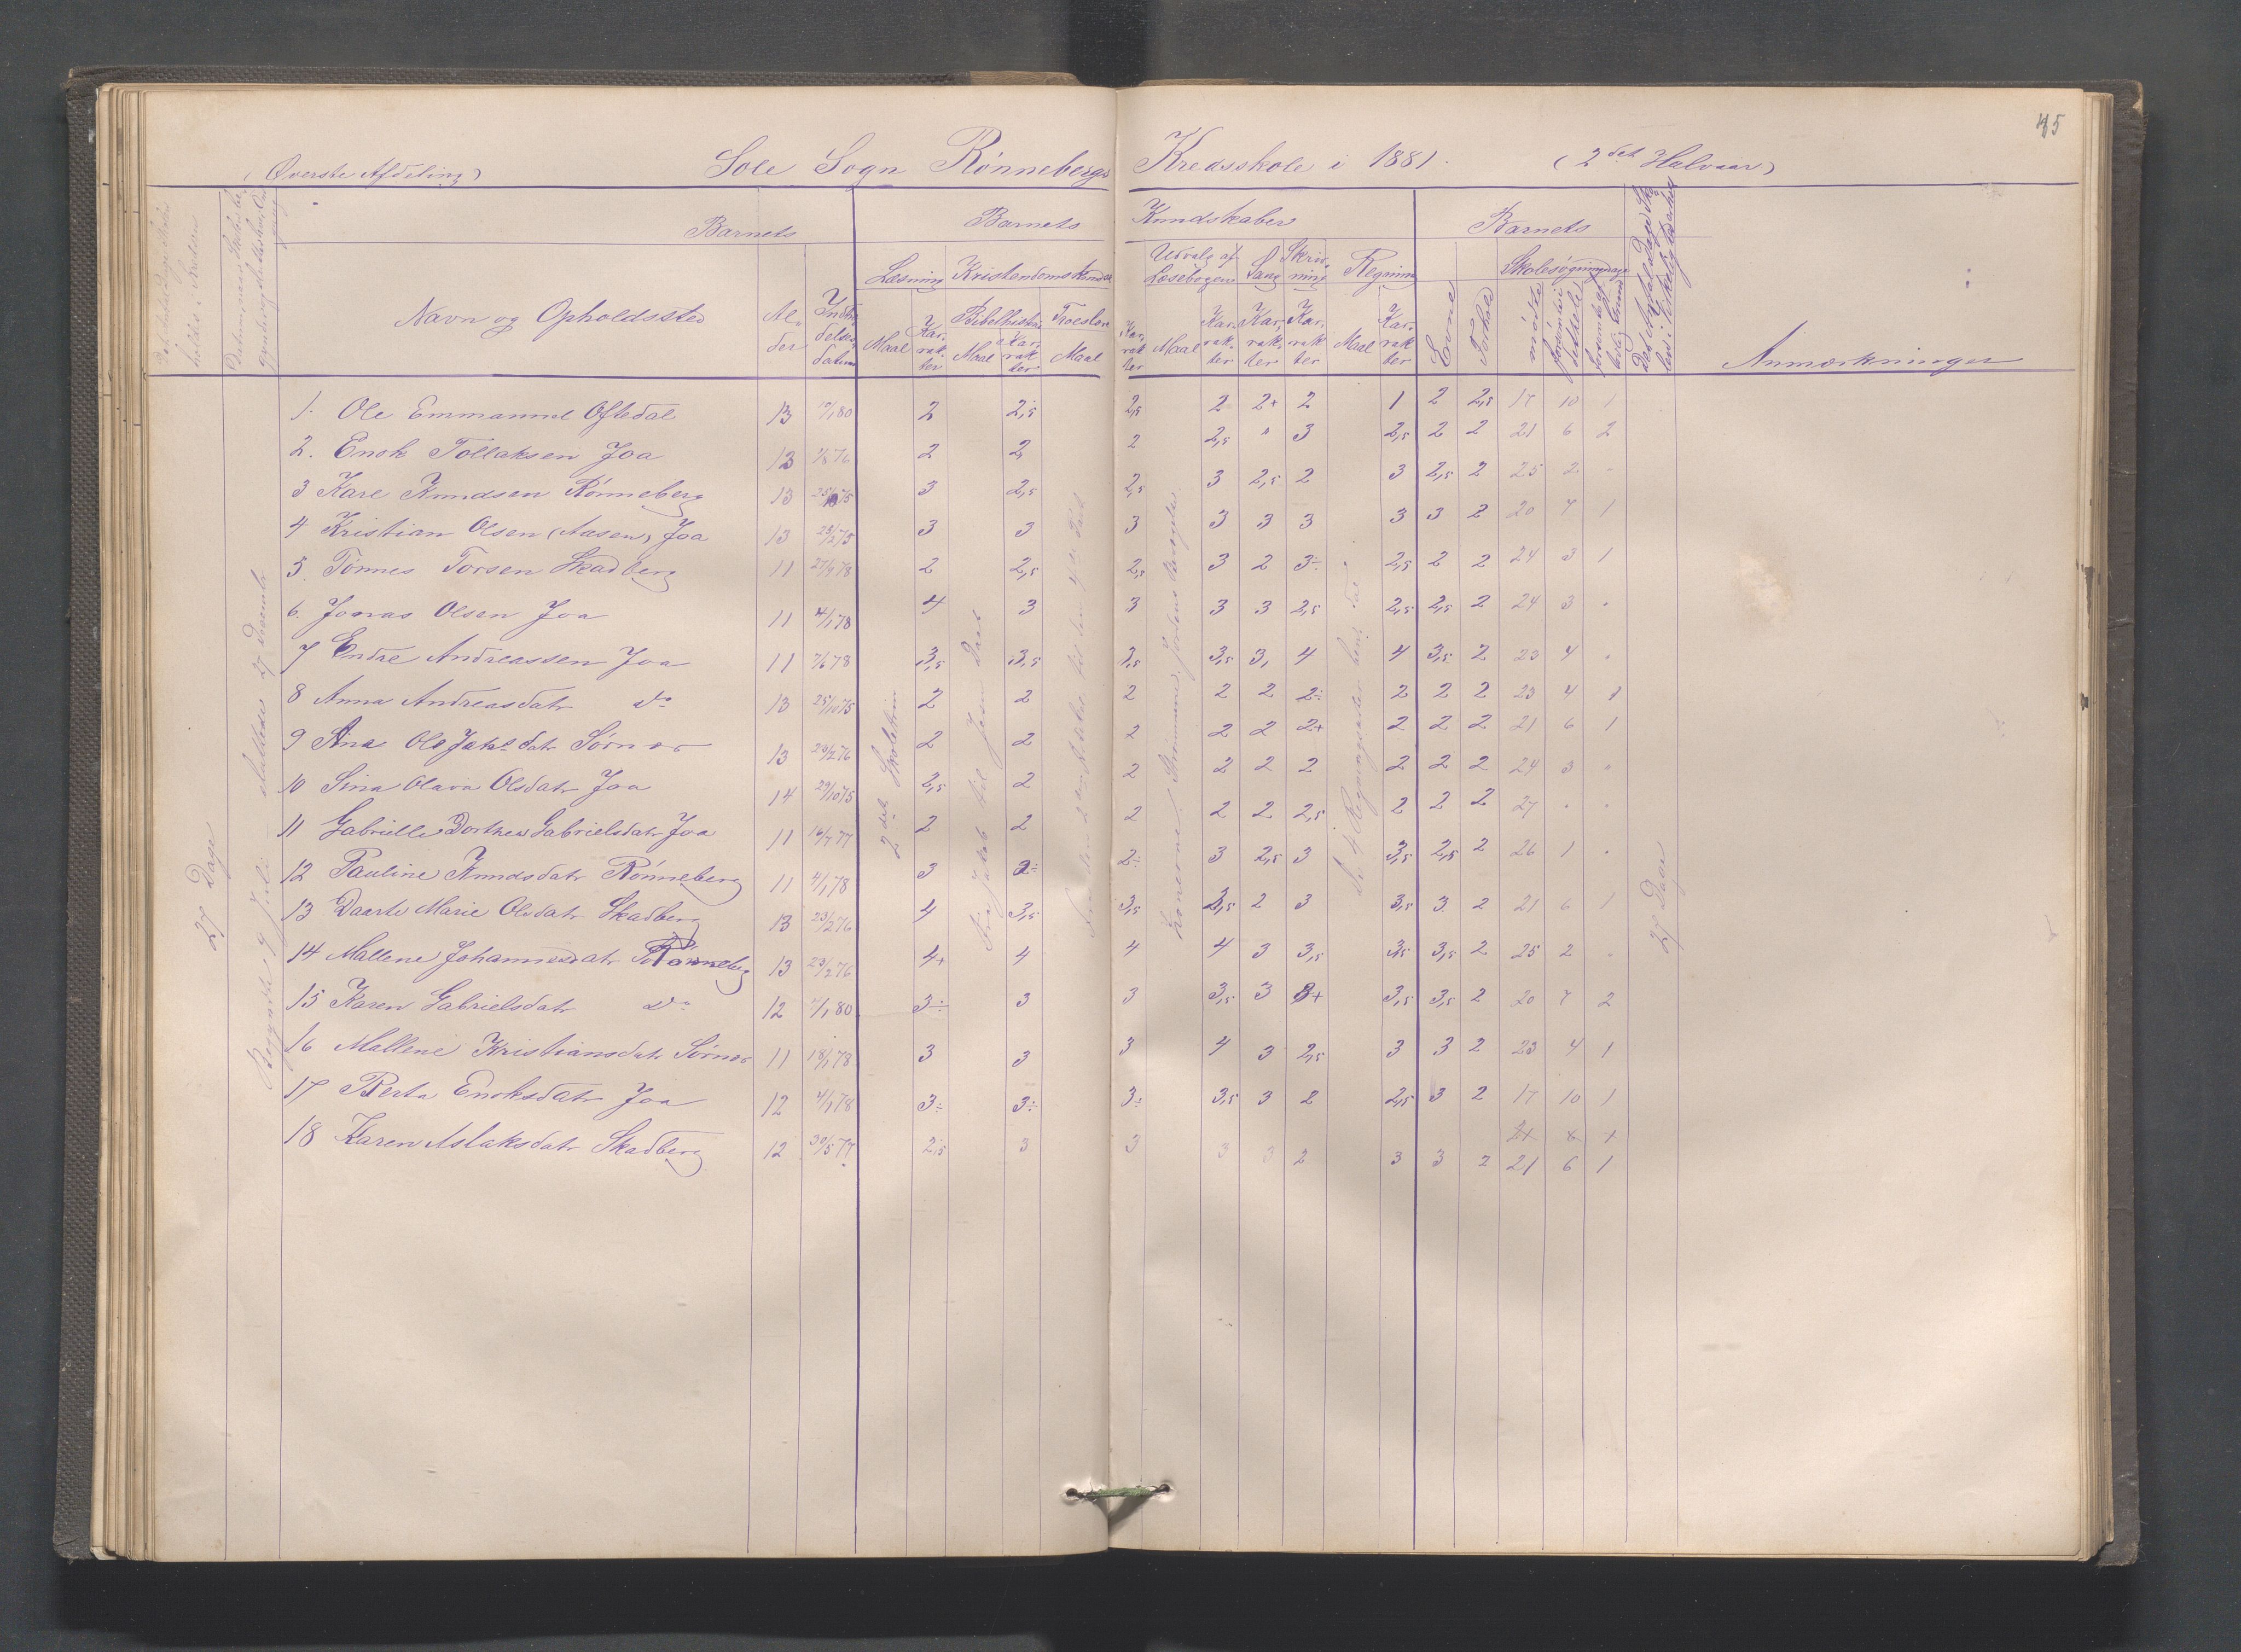 45
(Øverste Afdeling) Sole Sogn Rønnebergs Kredsskole i 1881. (2det Halvaar)
Barnets Barnets Kundskaber Barnets
Læsning Kristendomskundsk. Udvalg af Læsebogen Sang Skrivning Regning Skolesøgningsdage
Navn og Opholdssted Alder Indtrædelsesdatum Maal Karrakter Bibelhistorie Maal Karrakter Troeslære Maal Karrakter Maal Karrakter Karrakter Karrakter Maal Karrakter Evne Forhold mødte Anmærkninger
27 Dage
Begyndte 4 Juli sluttedes 27 Decembr
2det Skoletrin
27 Dage
1. Ole Emmanuel Oftedal 13 2 2,5 2,5 2 2+ 2 1 2 2,5 17 10 1
2. Enok Tollaksen Joa 13 2 2 2 2,5 3 2,5 2 2 21 6 2
3 Kare Knudsen Rønneberg 13 3 2,5 2,5 3 2,5 2 3 2,5 2 25 2
4 Kristian Olsen (Aasen) Joa 13 23/2 75 3 3 3 3 3 3 3 3 2 20 7 1
5. Tønnes Torsen Skadberg 11 2 2,5 2,5 3 2 3÷ 2,5 2 2 24 3 1
6. Jonas Olsen Joa 11 4/1 78 4 3 3 3 3 2,5 2,5 2,5 2 24 3
7 Endre Andreassen Joa 11 7/6 78 3,5 3,5 3,5 3,5 3, 4 4 3,5 2 23 4
8 Anna Andreasdatr do 13 25/10 75 2 2 2 2 2 2÷ 2 2 2 23 4
9 Ana Ole Jaksdatr Sørnes 13 23/2 76 2 2 2 2 2 2+ 2 2 2 21 6 1
10 Sina Olava Olsdatr Joa 14 29/10 75 2,5 2 2 2 2 2 2 2 2 24 3
11 Gabrielle Dorthea Gabrielsdatr Joa 11 16/7 77 2 2 2 2 2 2,5 2 2 2 27
12 Pauline Knudsdatr Rønneberg 11 4/1 78 3 2÷ 2÷ 3 2,5 3 3,5 2,5 2 26 1
13 Daarte Marie Olsdatr Skadberg 13 23/2 76 4 3,5 3,5 3,5 2 3 3,5 3 2 21 6 1
14 Mallene Johannesdatr Rønneberg 13 23/2 76 4+ 4 4 4 3 3,5 3,5 3,5 2 25 2
15 Karen Gabrielsdatr do 12 3÷ 3 3 3,5 3 3+ 3,5 3,5 2 20 7 2
16 Mallene Kristiansdatr Sørnes 11 18/1 78 3 3 3 4 3 2,5 3 3 2 23 4 1
17 Berta Enoksdatr Joa 12 4/1 78 3÷ 3÷ 3÷ 3,5 3 2 2,5 3 2 17 10 1
18 Karen Aslaksdatr Skadberg 12 30/5 77 2,5 3 3 3 3 2 3 3 2 21 6 1